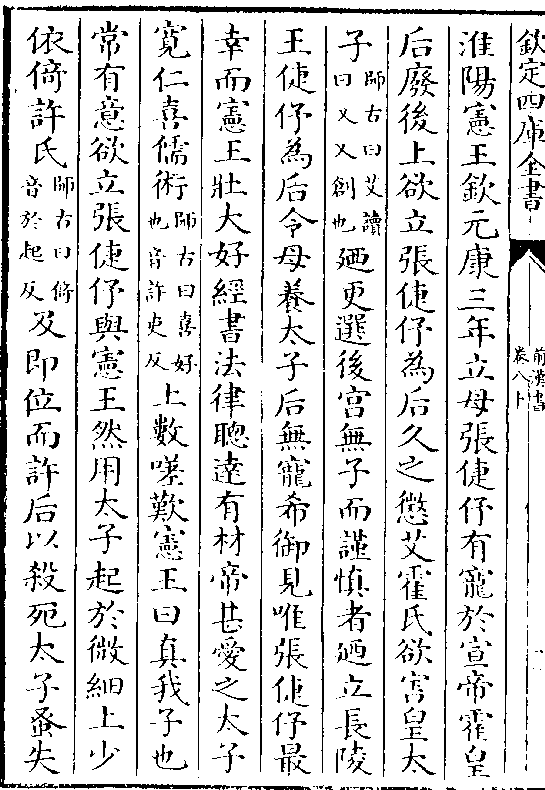 欽定四庫全書
前漢書
卷八十
淮陽憲王欽元康三年立母張倢伃有寵於宣帝霍皇
后廢後上欲立張倢伃為后久之懲艾霍氏欲害皇太
子師古曰艾讀曰乂乂創也廼更選後宫無子而謹慎者廼立長陵
王倢伃為后令母養太子后無寵希御見唯張倢伃最
幸而憲王壯大好經書法律聰達有材帝甚愛之太子
寛仁喜儒術師古曰喜好也音許吏反上數嗟歎憲王曰真我子也
常有意欲立張倢伃與憲王然用太子起於微細上少
依倚許氏師古曰倚音於起反及即位而許后以殺死太子蚤失